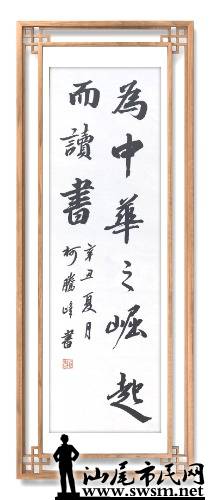 為中華之崛起
而讀書
辛丑夏月
柯騰峰書
汕尾市民网
www.swsm.net